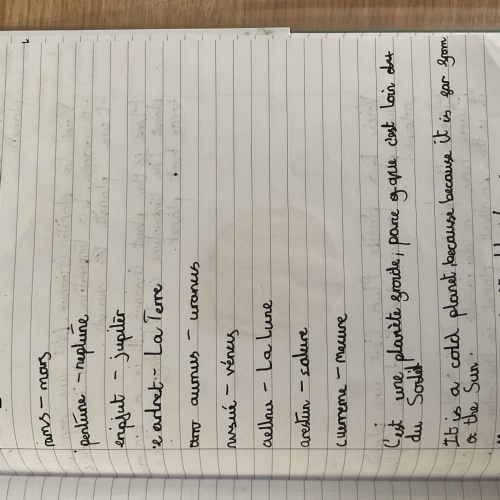 rams - mars
pentune - neptune
enipjut - jupiter
e ardret - La Terre
aunus - uranus
nusué - vénus
aellnu - La Lune
arestun - saturne
cumreme - mecure
C'est une planète froide, parce que c'est loin du
du Soleil
It is a cold planet, because it is far from
the Sun.